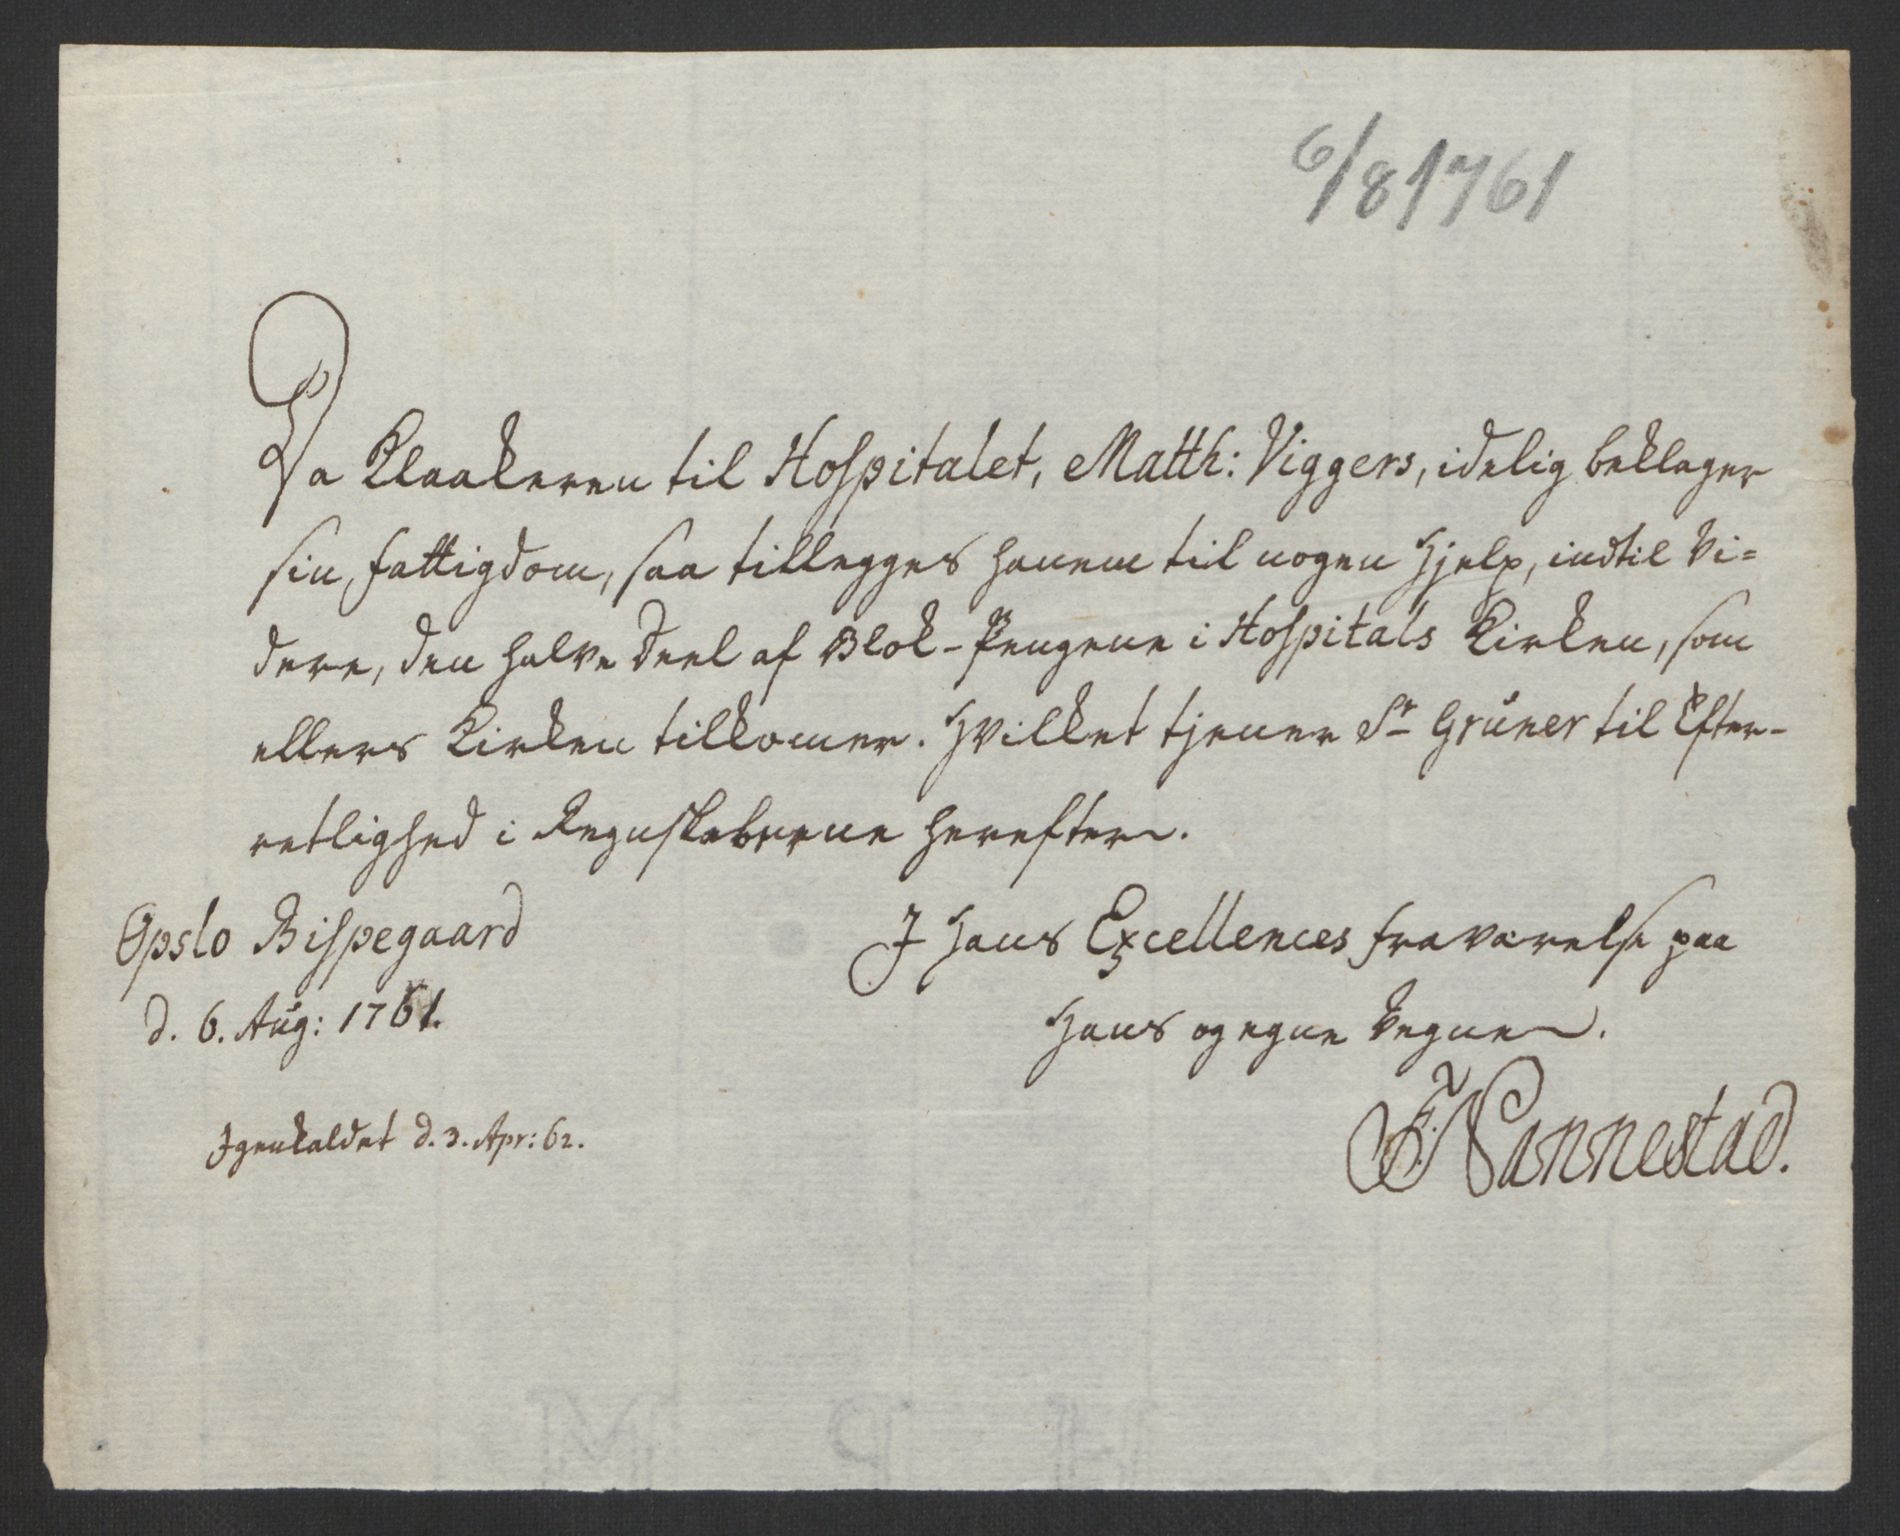 6/8 1761
Da Klaakeren til Hospitalet, Matth: Viggers, idelig beklager
sin fattigdom, saa tillegges hanem til nogen Hjelp, indtil Vi=
dere, den halve Deel af Blok-Pengene i Hospitals Kirken, som
ellers Kirken tilkomer. Hvilket tjener Sr Grüner til Efter-
retlighed i Regnskaberne herefter.
Opslo Bispegaard
d. 6. Aug: 1761.
J Hans Excellences fraværelse paa
Hans og egne Vegne.
F. Nannestad.
Igenkaldet d. 3. Apr: 62.